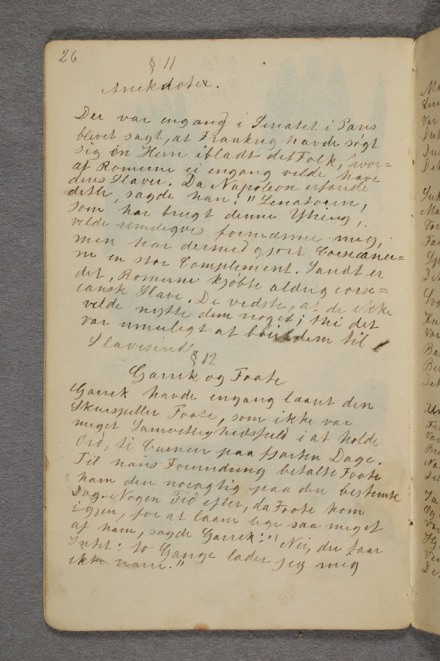 26
§ 11
Anekdoter.
Der var engang i Senatet i Paris
blevet sagt, at Frankrig havde søgt
sig en Herre iblandt det Folk, hvor=
af Romerne ei engang vilde have
deres Slaver. Da Napoleon erfarede
dette, sagde han: "Senatoren,
som har brugt denne Ytring,
vilde fornærme mig,
men har dermed gjort Corsicaner=
ne en stor Compliment. Sandt er
det, Romerne kjøbte aldrig corsi=
cansk Slave. De vidste, at de ikke
vilde nytte dem noget; thi det
var umuligt at dem til
Slavesind"
§ 12
Garrik og Foote
Garrik havde engang laant den
Skuespiller Foote, som ikke var
meget Samvittighedsfuld i at holde
Ord, ti Guineer paa fjorten Dage.
Til hans Forundring betalte Foote
ham den nøiagtig paa den bestemte
Dag. Nogen Tid efter, da Foote kom
igjen, for at laane lige saa meget
af ham, sagde Garrik: "Nei, du faar
Intet: to Gange lader jeg mig
ikke narre."